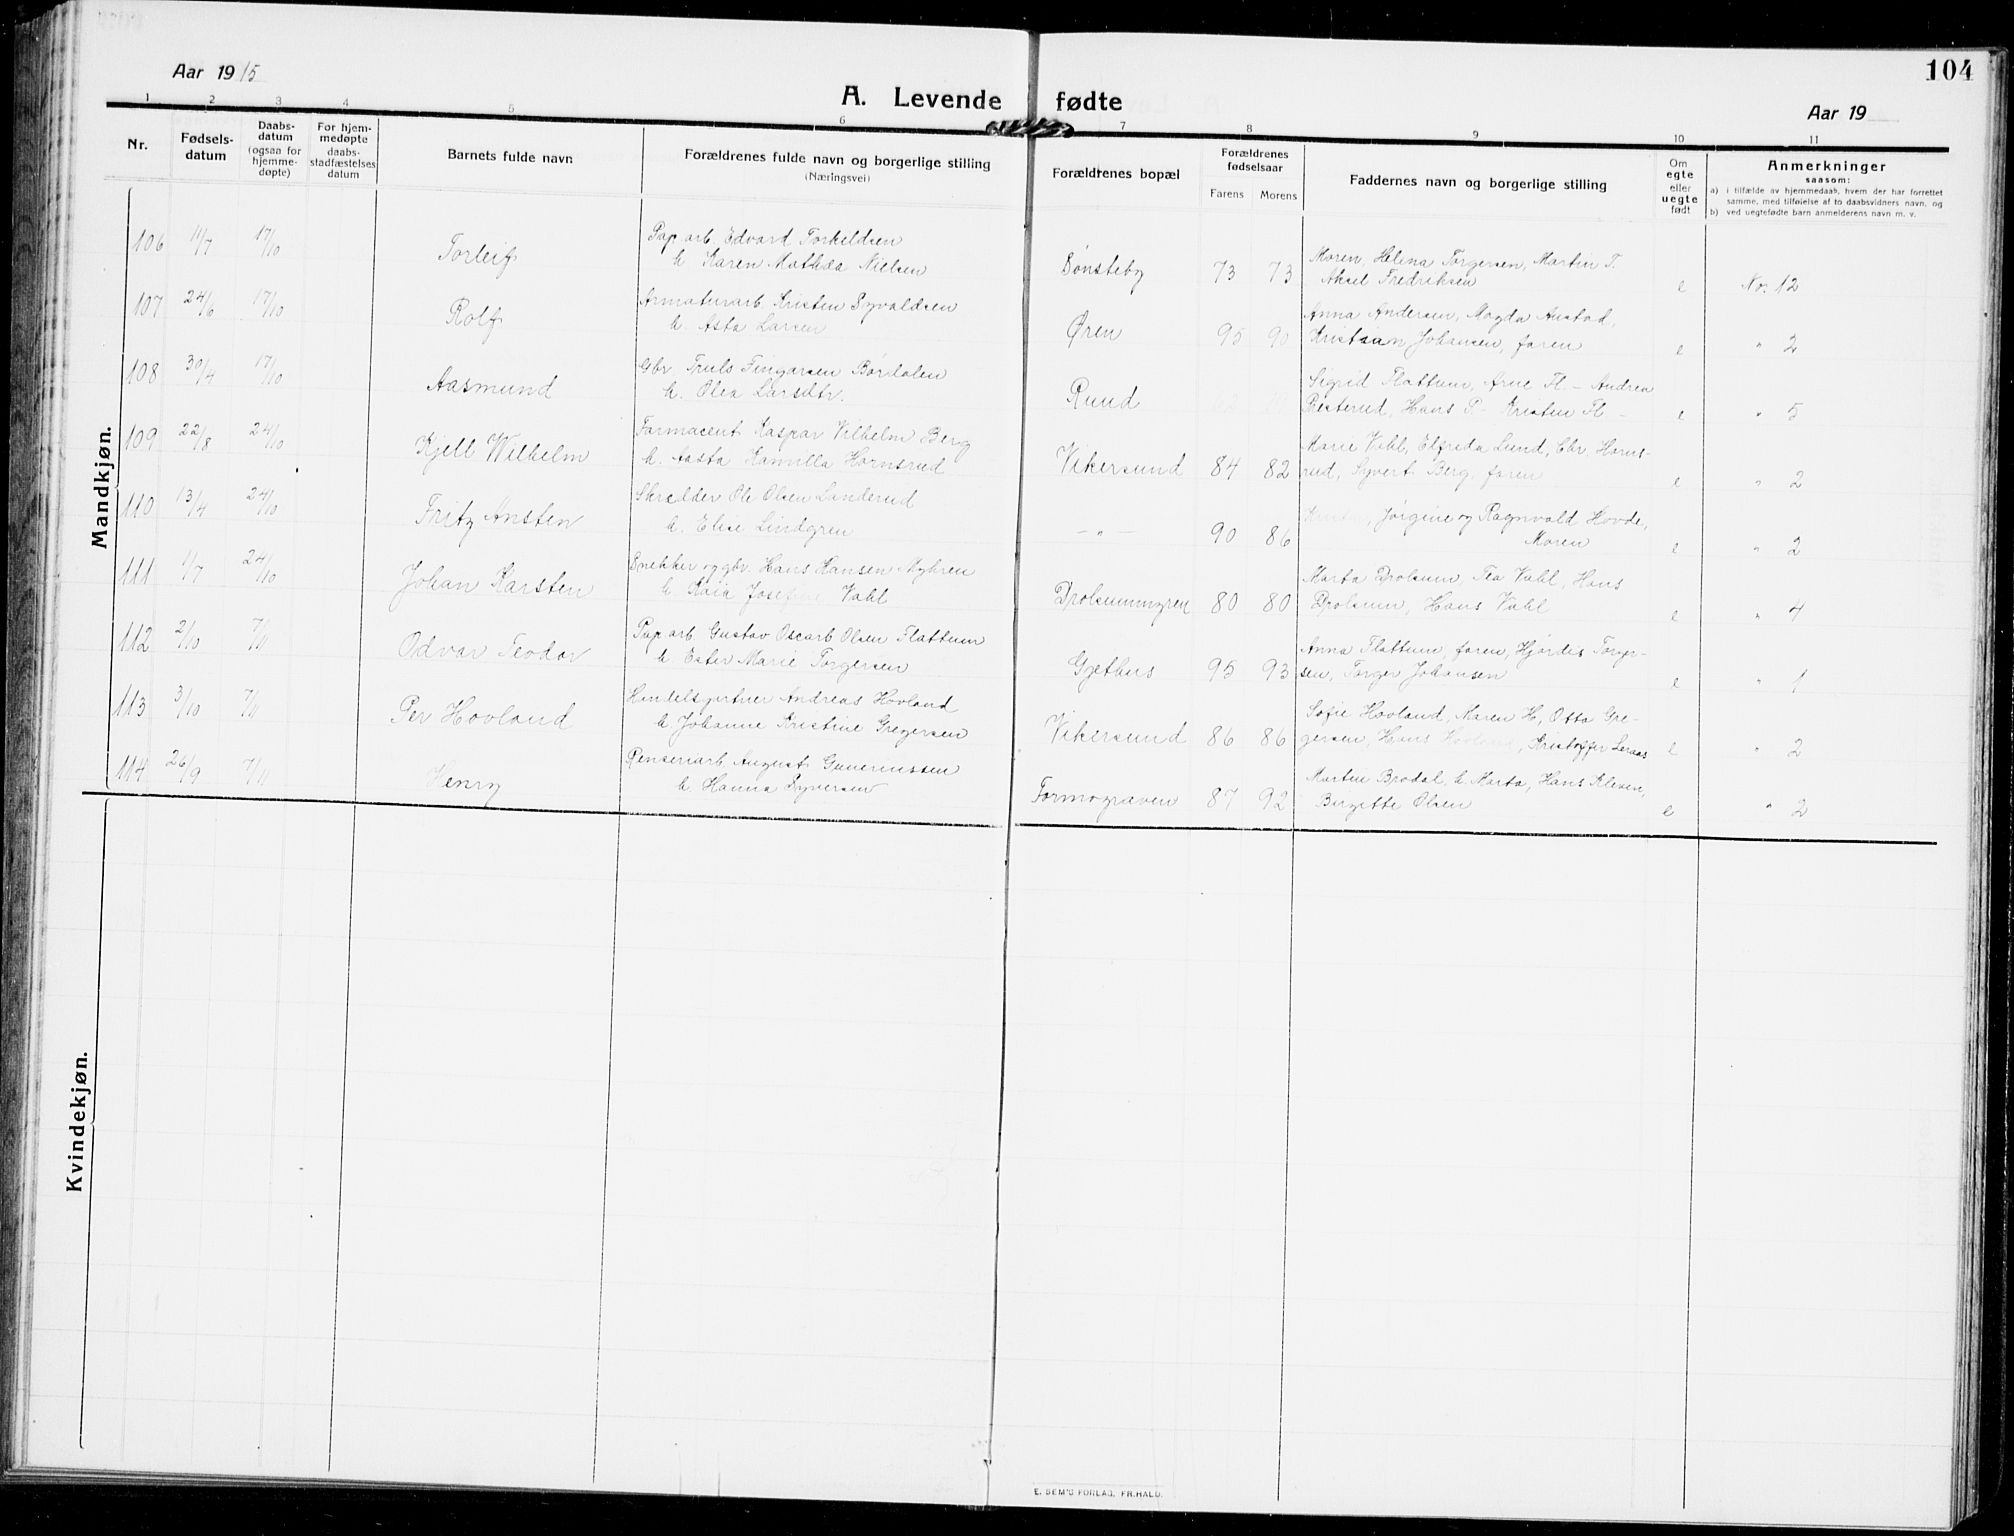 104
Aar 1915
A. Levende fødte
Aar 19
1 2 3 4 5 6 7 8 9 10 11
Nr.
Fødsels-
datum
Daabs-
datum
(ogsaa for
hjemme-
døpte)
For hjem-
medøpte
daabs-
stadfæstelses
datum
Barnets fulde navn
Forældrenes fulde navn og borgerlige stilling
(Næringsvei)
Forældrenes bopæl
Forældrenes
fødselsaar
Farens Morens
Faddernes navn og borgerlige stilling
Om
egte
eller
uegte
født
Anmerkninger
saasom:
a) i tilfælde av hjemmedaab, hvem der har forrettet
samme, med tilføielse af to daabsvidners navn, og
b) ved uegtefødte barn anmelderens navn m. v.
Mandkjøn.
106 11/7 17/10 Torleif
Pap. arb. Edvard Torkildsen
h. Karen Mathilda Nielsen
Sønsteby 73 73
Moren, Helina Torgersen, Martin T.
Aksel Fredriksen
e No. 12
107 24/6 17/10 Rolf
Armaturarb. Kristen Syvaldsen
h. Asta Larsen
Øren 95 90
Anna Andersen, Magda Austad,
Kristian Johansen, faren
e " 2
108 30/4 17/10 Aasmund
Gbr. Truls Fingarsen Børdalen
h. Olea Larsdtr.
Ruud
Sigrid Flattum, Arne Fl. - Andrea
Presterud, Hans P. - Kristen Fl -
e " 5
109 22/8 24/10 Kjell Wilhelm
Farmaceut Kaspar Vilhelm Berg
h. Aasta Kamilla Hornsrud
Vikersund 84 82
Marie Vahl, Elfrida Lund, Chr. Horns-
rud, Syvert Berg, faren
e " 2
110 13/4 24/10 Fritz Ansten
Skrædder Ole Olsen Landerud
h. Elise Lindgren
- " - 90 86
Jørgine og Ragnvald Hovde,
Moren
e " 2
111 1/7 24/10 Johan Karsten
Snekker og gbr. Hans Hansen Myhren
h. Kaia Josefine Vahl
Drolsummyren 80 80
Marta Drolsum, Tea Vahl, Hans
Drolsum, Hans Vahl
e " 4
112 2/10 7/11 Odvar Teodor
Pap. arb. Gustav Oscarb Olsen Flattum
h. Ester Marie Torgersen
Gjethus 95 93
Anna Flattum, faren, Hjørdis Torger-
sen, Torger Johansen
e " 1
113 3/10 7/11 Per Hovland
Handelsgartner Andreas Hovland
h. Johanne Kristine Gregersen
Vikersund 86 86
Sofie Hovland, Maren H, Otta Gre-
gersen, Hans Hovland, Kristoffer Leraas
e " 2
114 26/9 7/11 Henry
Renseriarb. August Gunerussen
h. Hanna Syversen
Formograven 87 92
Martin Brodal, h. Marta, Hans Klesen,
Birgitte Olsen
e " 2
Kvindekjøn.
E. SEM'S FORLAG, FR.HALD.